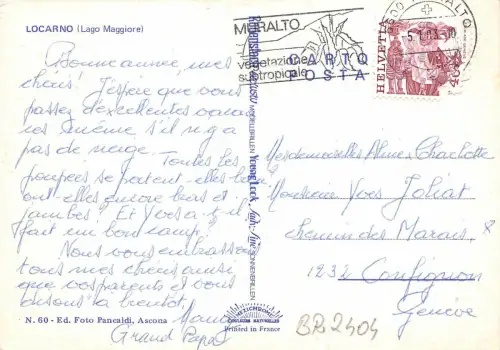 LOCARNO (Lago Maggiore)
Bonne année mes
chéris! J'espère que vous
passez d'excellentes vacan
ces même s'il n'y a
pas de neige. Toutes les
poupées se portent-elles bien
ont-elles encore bras et
jambes? Et Yves a-t-il
fait un bon camp?
Nous vous embrassons
tous mes chéris ainsi
que vos parents et vous
disons à bientôt.
Mamy
Grand Papa
N. 60 - Ed. Foto Pancaldi, Ascona
MURALTO
vegetazione
subtropicale
CARTO
POSTA
MURALTO
HELVETIA
MODEBRILLEN
SONNENBRILLEN
MEXICHROME
COULEURS NATURELLES
Printed in France
Mesdemoiselles Aline, Charlotte
Monsieur Yves Joliat
Chemin des Marais, 8
1232 Confignon
Genève
BB2404